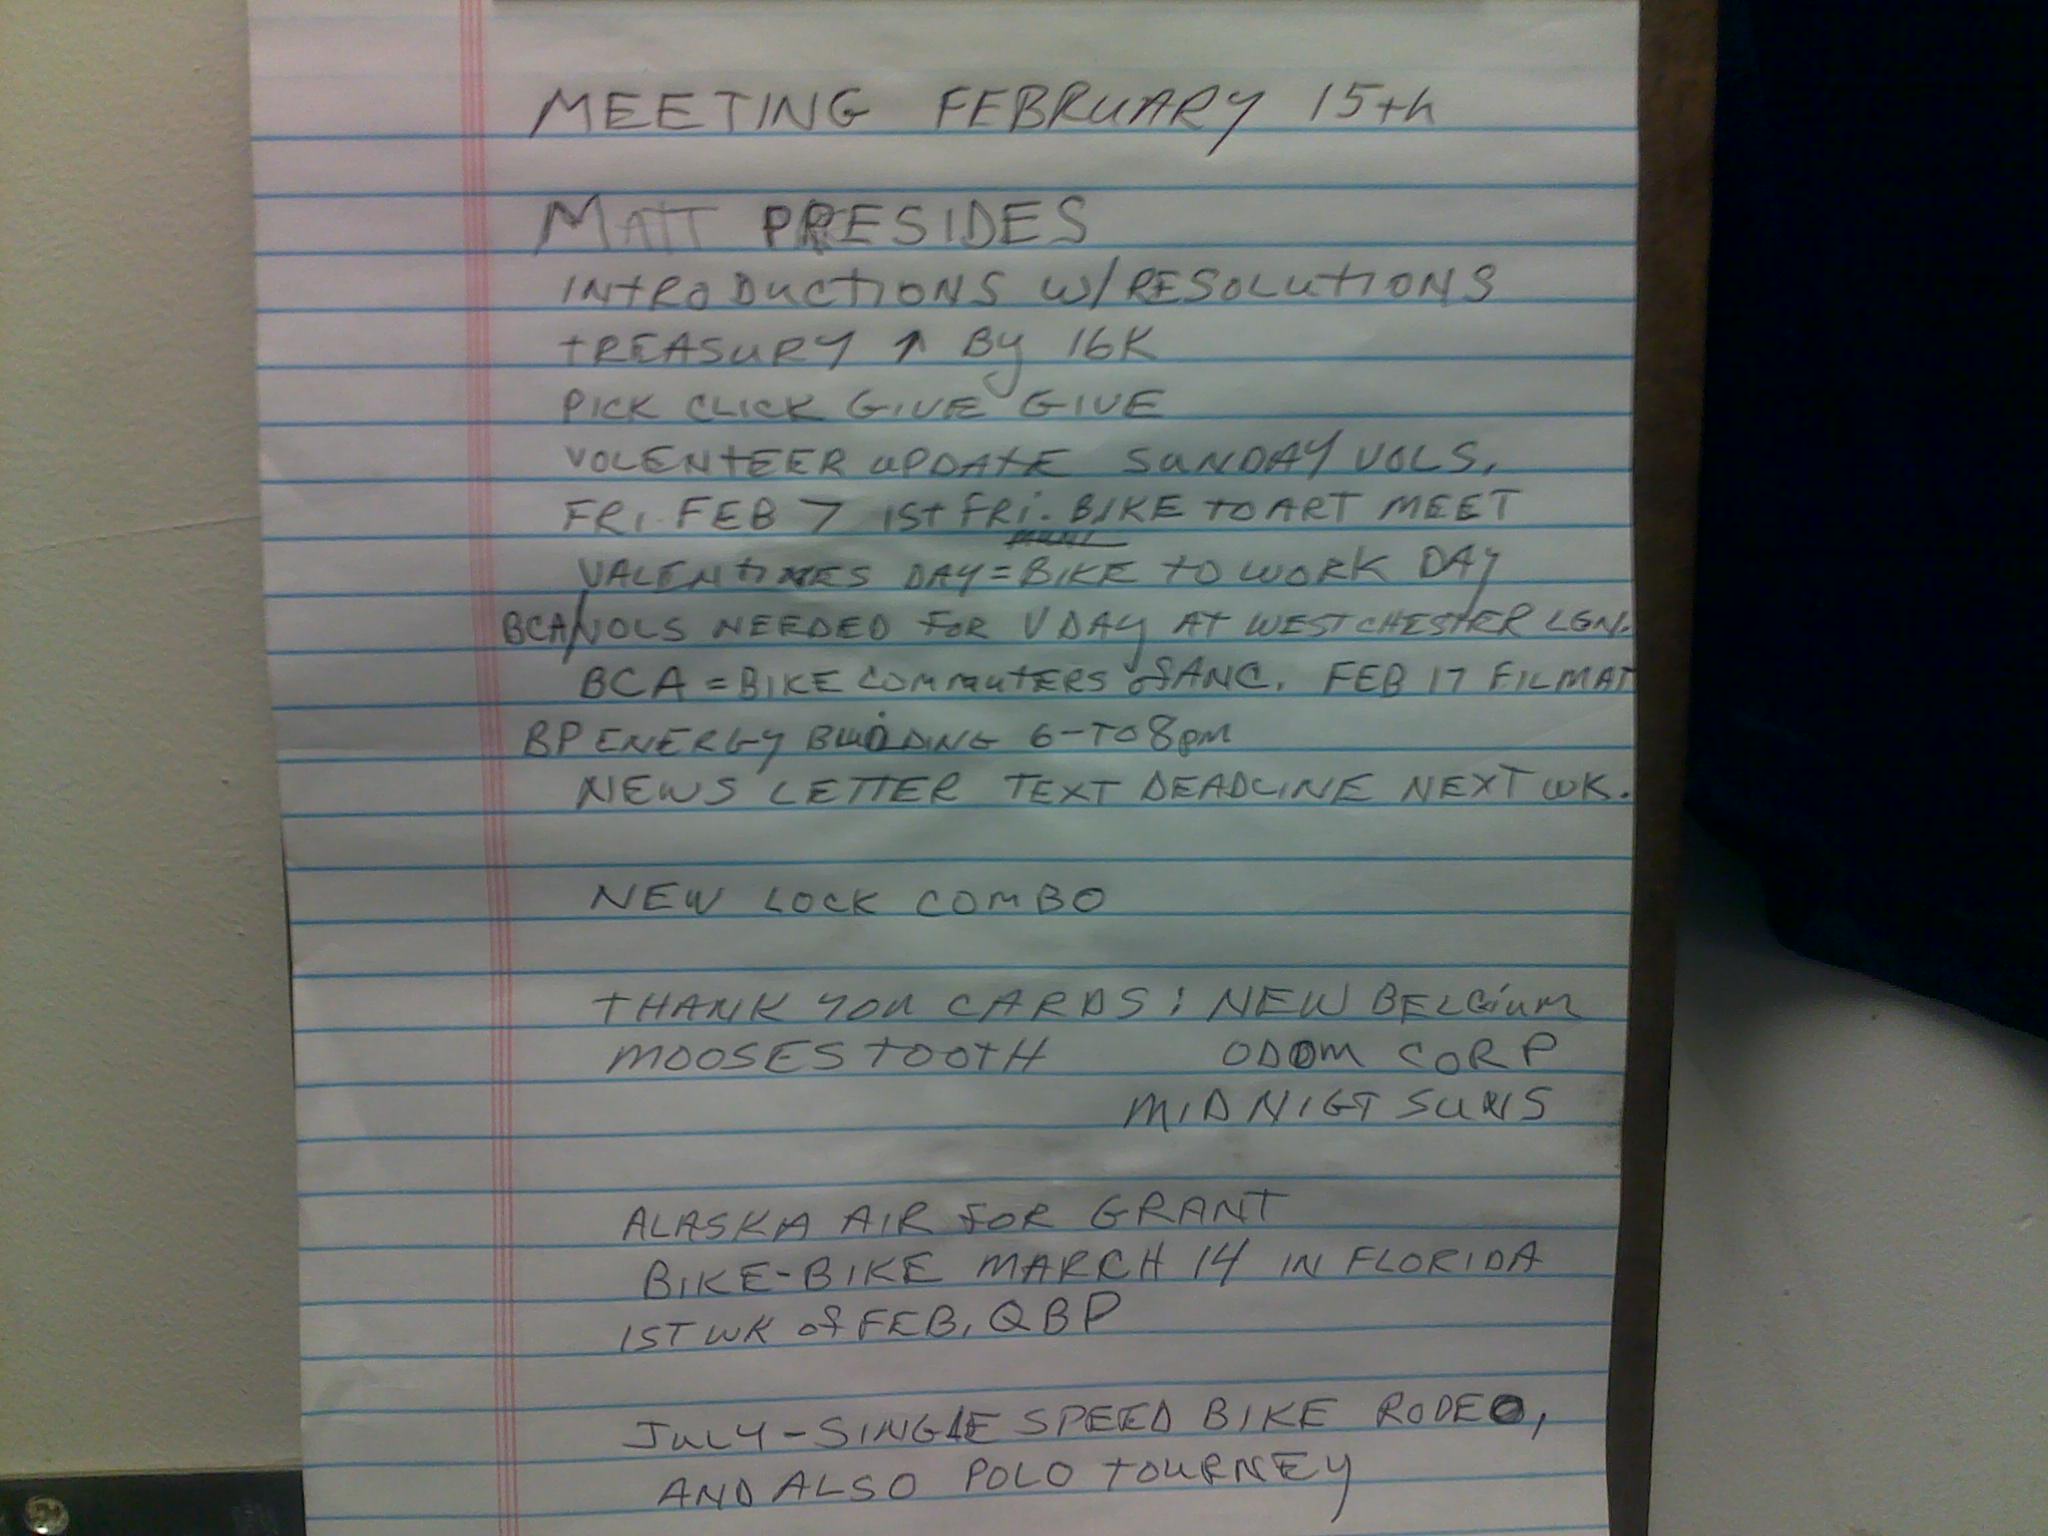 MEETING FEBRUARY 15th
MATT PRESIDES
INTRODUCTIONS W/RESOLUTIONS
TREASURY ↑ By 16K
PICK CLICK GIVE GIVE
VOLENTEER UPDATE SUNDAY VOLS,
FRI. FEB 7 1ST FRi. BIKE TO ART MEET
VALENTINES DAY = BIKE TO WORK DAY
BCA/VOLS NEEDED FOR V DAY AT WESTCHESTER LGN.
BCA = BIKE COMMUTERS of ANC. FEB 17 FILM AT
BP ENERGY BUILDING 6-TO 8pm
NEWS LETTER TEXT DEADLINE NEXT WK.
NEW LOCK COMBO
THANK YOU CARDS: NEW BELGiUM
MOOSES TOOTH ODOM CORP
MIDNIGT SUNS
ALASKA AIR FOR GRANT
BIKE-BIKE MARCH 14 IN FLORIDA
1ST WK of FEB, QBP
JULY-SINGLE SPEED BIKE RODEO,
AND ALSO POLO TOURNEY